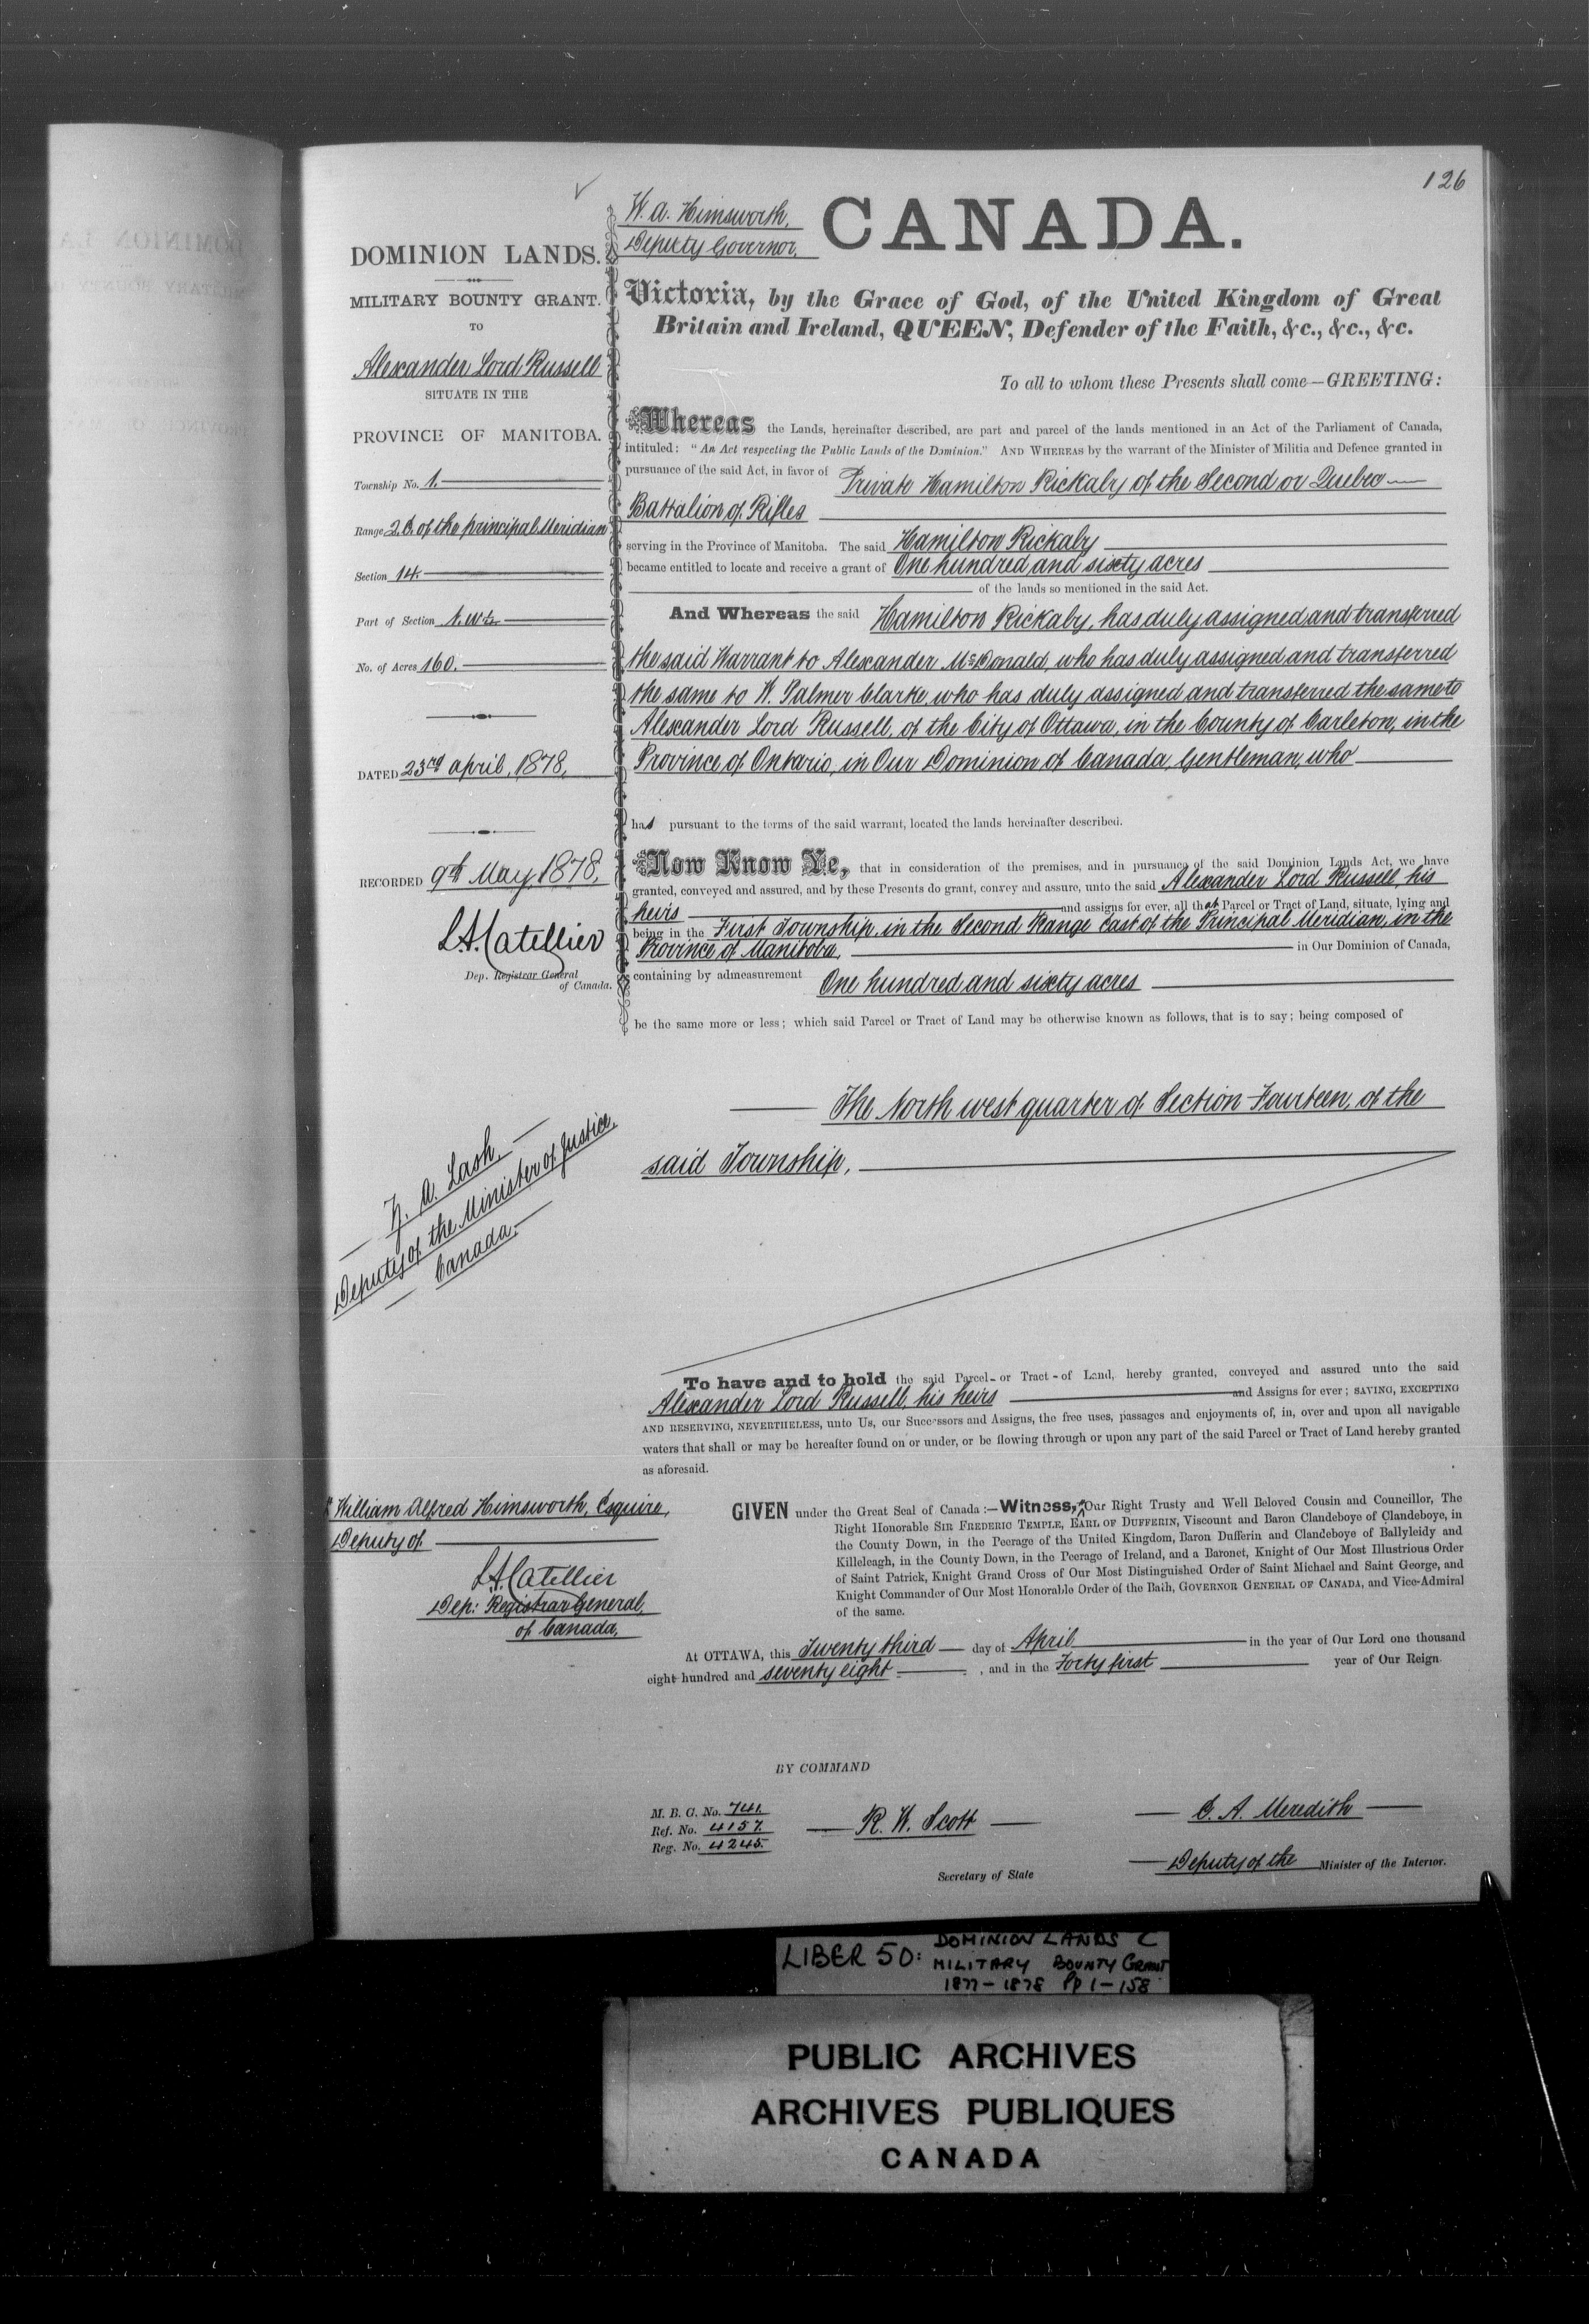 126
W. A. Himsworth,
Deputy Governor,
CANADA.
DOMINION LANDS.
MILITARY BOUNTY GRANT.
TO
Alexander Lord Russell
SITUATE IN THE
PROVINCE OF MANITOBA.
Township No. 1.
Range 2. E. of the principal Meridian
Section 14.
Part of Section N. W ¼
No. of Acres 160.
DATED 23rd April, 1878,
RECORDED 9th May, 1878,
L.A. Catellier
Dep. Registrar General
of Canada.
Z. A. Lash,
Deputy of the Minister of Justice,
Canada.
Victoria, by the Grace of God, of the United Kingdom of Great
Britain and Ireland, QUEEN, Defender of the Faith, &c., &c., &c.
To all to whom these Presents shall come—GREETING:
Whereas the Lands, hereinafter described, are part and parcel of the lands mentioned in an Act of the Parliament of Canada,
intituled: "An Act respecting the Public Lands of the Dominion." AND WHEREAS by the warrant of the Minister of Militia and Defence granted in
pursuance of the said Act, in favor of Private Hamilton Rickaby of the Second or Quebec
Battalion of Rifles
serving in the Province of Manitoba. The said Hamilton Rickaby
became entitled to locate and receive a grant of One hundred and sixty acres
of the lands so mentioned in the said Act.
And Whereas the said Hamilton Rickaby, has duly assigned and transferred
the said Warrant to Alexander McDonald, who has duly assigned and transferred
the same to W. Palmer Clarke, who has duly assigned and transferred the same to
Alexander Lord Russell, of the City of Ottawa, in the County of Carleton, in the
Province of Ontario, in Our Dominion of Canada, Gentleman, who
has pursuant to the terms of the said warrant, located the lands hereinafter described.
Now Know Ye, that in consideration of the premises, and in pursuance of the said Dominion Lands Act, we have
granted, conveyed and assured, and by these Presents do grant, convey and assure, unto the said Alexander Lord Russell, his
heirs and assigns for ever, all that Parcel or Tract of Land, situate, lying and
being in the First Township, in the Second Range East of the Principal Meridian, in the
Province of Manitoba, in Our Dominion of Canada,
containing by admeasurement One hundred and sixty acres
be the same more or less; which said Parcel or Tract of Land may be otherwise known as follows, that is to say; being composed of
The North west quarter of Section Fourteen, of the
said Township,
To have and to hold the said Parcel or Tract of Land, hereby granted, conveyed and assured unto the said
Alexander Lord Russell, his heirs and Assigns for ever; SAVING, EXCEPTING
AND RESERVING, NEVERTHELESS, unto Us, our Successors and Assigns, the free uses, passages and enjoyments of, in, over and upon all navigable
waters that shall or may be hereafter found on or under, or be flowing through or upon any part of the said Parcel or Tract of Land hereby granted
as aforesaid.
William Alfred Himsworth, Esquire,
Deputy of
L.A. Catellier
Dep: Registrar General,
of Canada,
GIVEN under the Great Seal of Canada:—Witness, Our Right Trusty and Well Beloved Cousin and Councillor, The
Right Honorable SIR FREDERIC TEMPLE, EARL OF DUFFERIN, Viscount and Baron Clandeboye of Clandeboye, in
the County Down, in the Peerage of the United Kingdom, Baron Dufferin and Clandeboye of Ballyleidy and
Killeleagh, in the County Down, in the Peerage of Ireland, and a Baronet, Knight of Our Most Illustrious Order
of Saint Patrick, Knight Grand Cross of Our Most Distinguished Order of Saint Michael and Saint George, and
Knight Commander of Our Most Honorable Order of the Bath, GOVERNOR GENERAL OF CANADA, and Vice-Admiral
of the same.
At OTTAWA, this Twenty third day of April in the year of Our Lord one thousand
eight hundred and seventy eight, and in the Forty first year of Our Reign.
BY COMMAND
M. B. G. No. 741.
Ref. No. 4157.
Reg. No. 4245.
R. W. Scott
Secretary of State
E. A. Meredith
Deputy of the Minister of the Interior.
LIBER 50: DOMINION LANDS C
MILITARY BOUNTY GRANT
1877-1878 Pp 1-158
PUBLIC ARCHIVES
ARCHIVES PUBLIQUES
CANADA